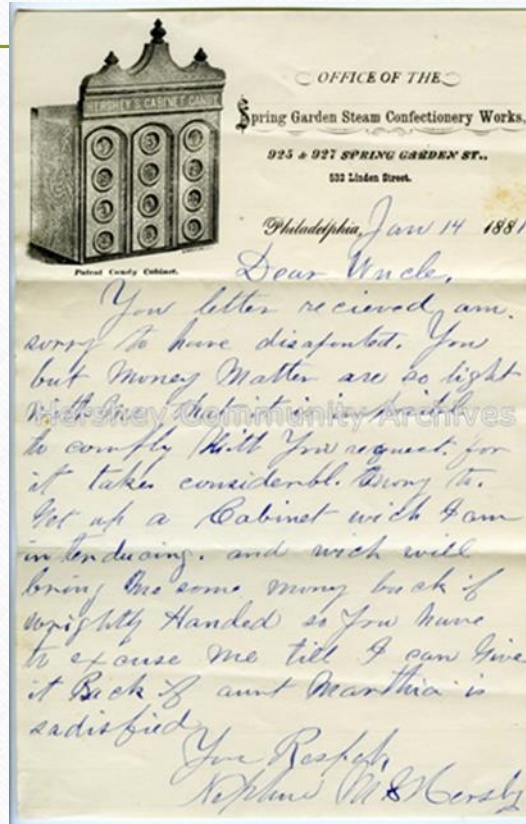 HERSHEY'S CABINET CANDY
Patent Candy Cabinet.
OFFICE OF THE
Spring Garden Steam Confectionery Works,
925 & 927 SPRING GARDEN ST.,
532 Linden Street.
Philadelphia, Jan 14 1881
Dear Uncle,
You letter recieved am
sorry to have disapointed. You
but Money Matter are so tight
with me that it is
Hershey Community Archives
to comply With Your request. for
it takes considerbl. Mony to.
Get up a Cabinet wich I am
intenducing. and wich will
bring me some mony back if
wrightly Handed so You have
to excuse me till I can Give
it Back if aunt Marthia is
sadisfied
Your Respect
Nephue M S Hershy